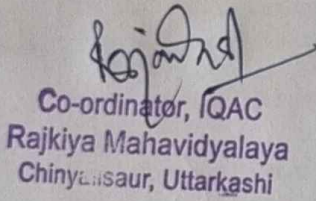 Co-ordinator, IQAC
Rajkiya Mahavidyalaya
Chinyalisaur, Uttarkashi